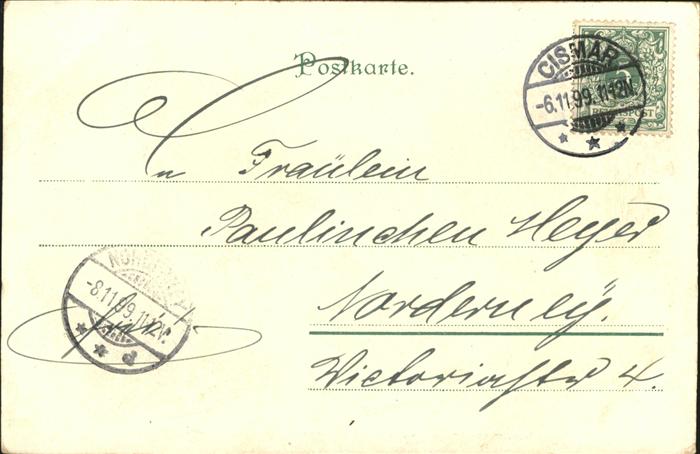 Postkarte.
CISMAR
-6.11.99.11-12N.
5
REICHSPOST
Fräulein
Paulinchen Heyer
Norderney.
Victoriastr 4.
-8.11.99.11-12V.
d